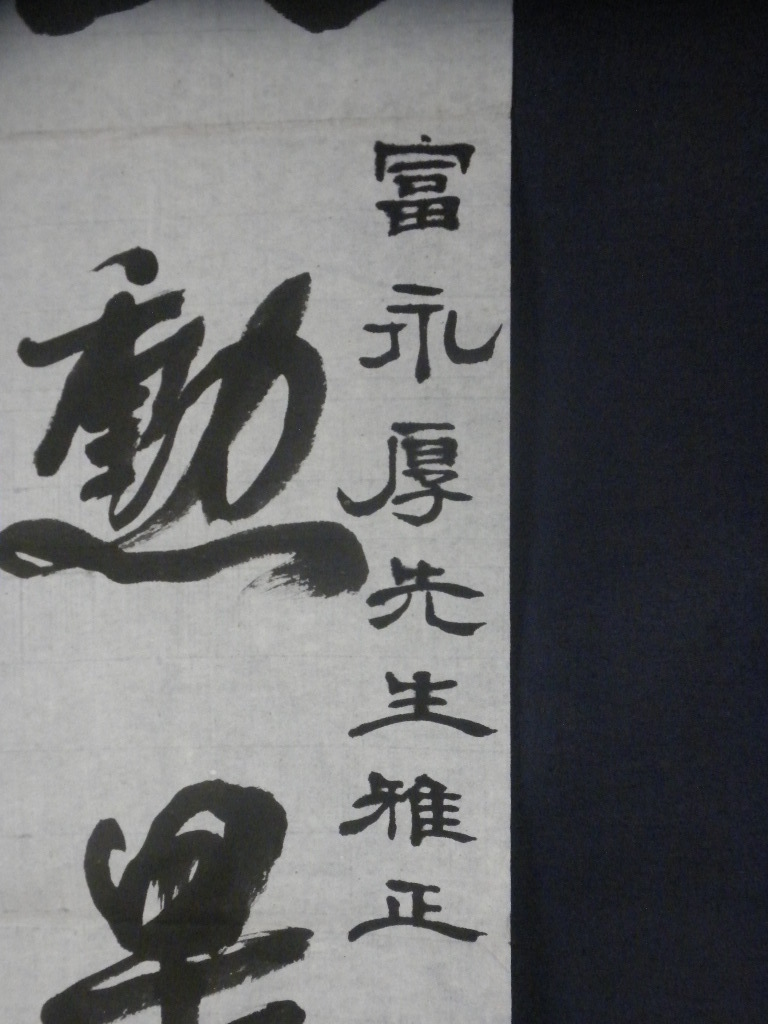 富永厚先生雅正
勳